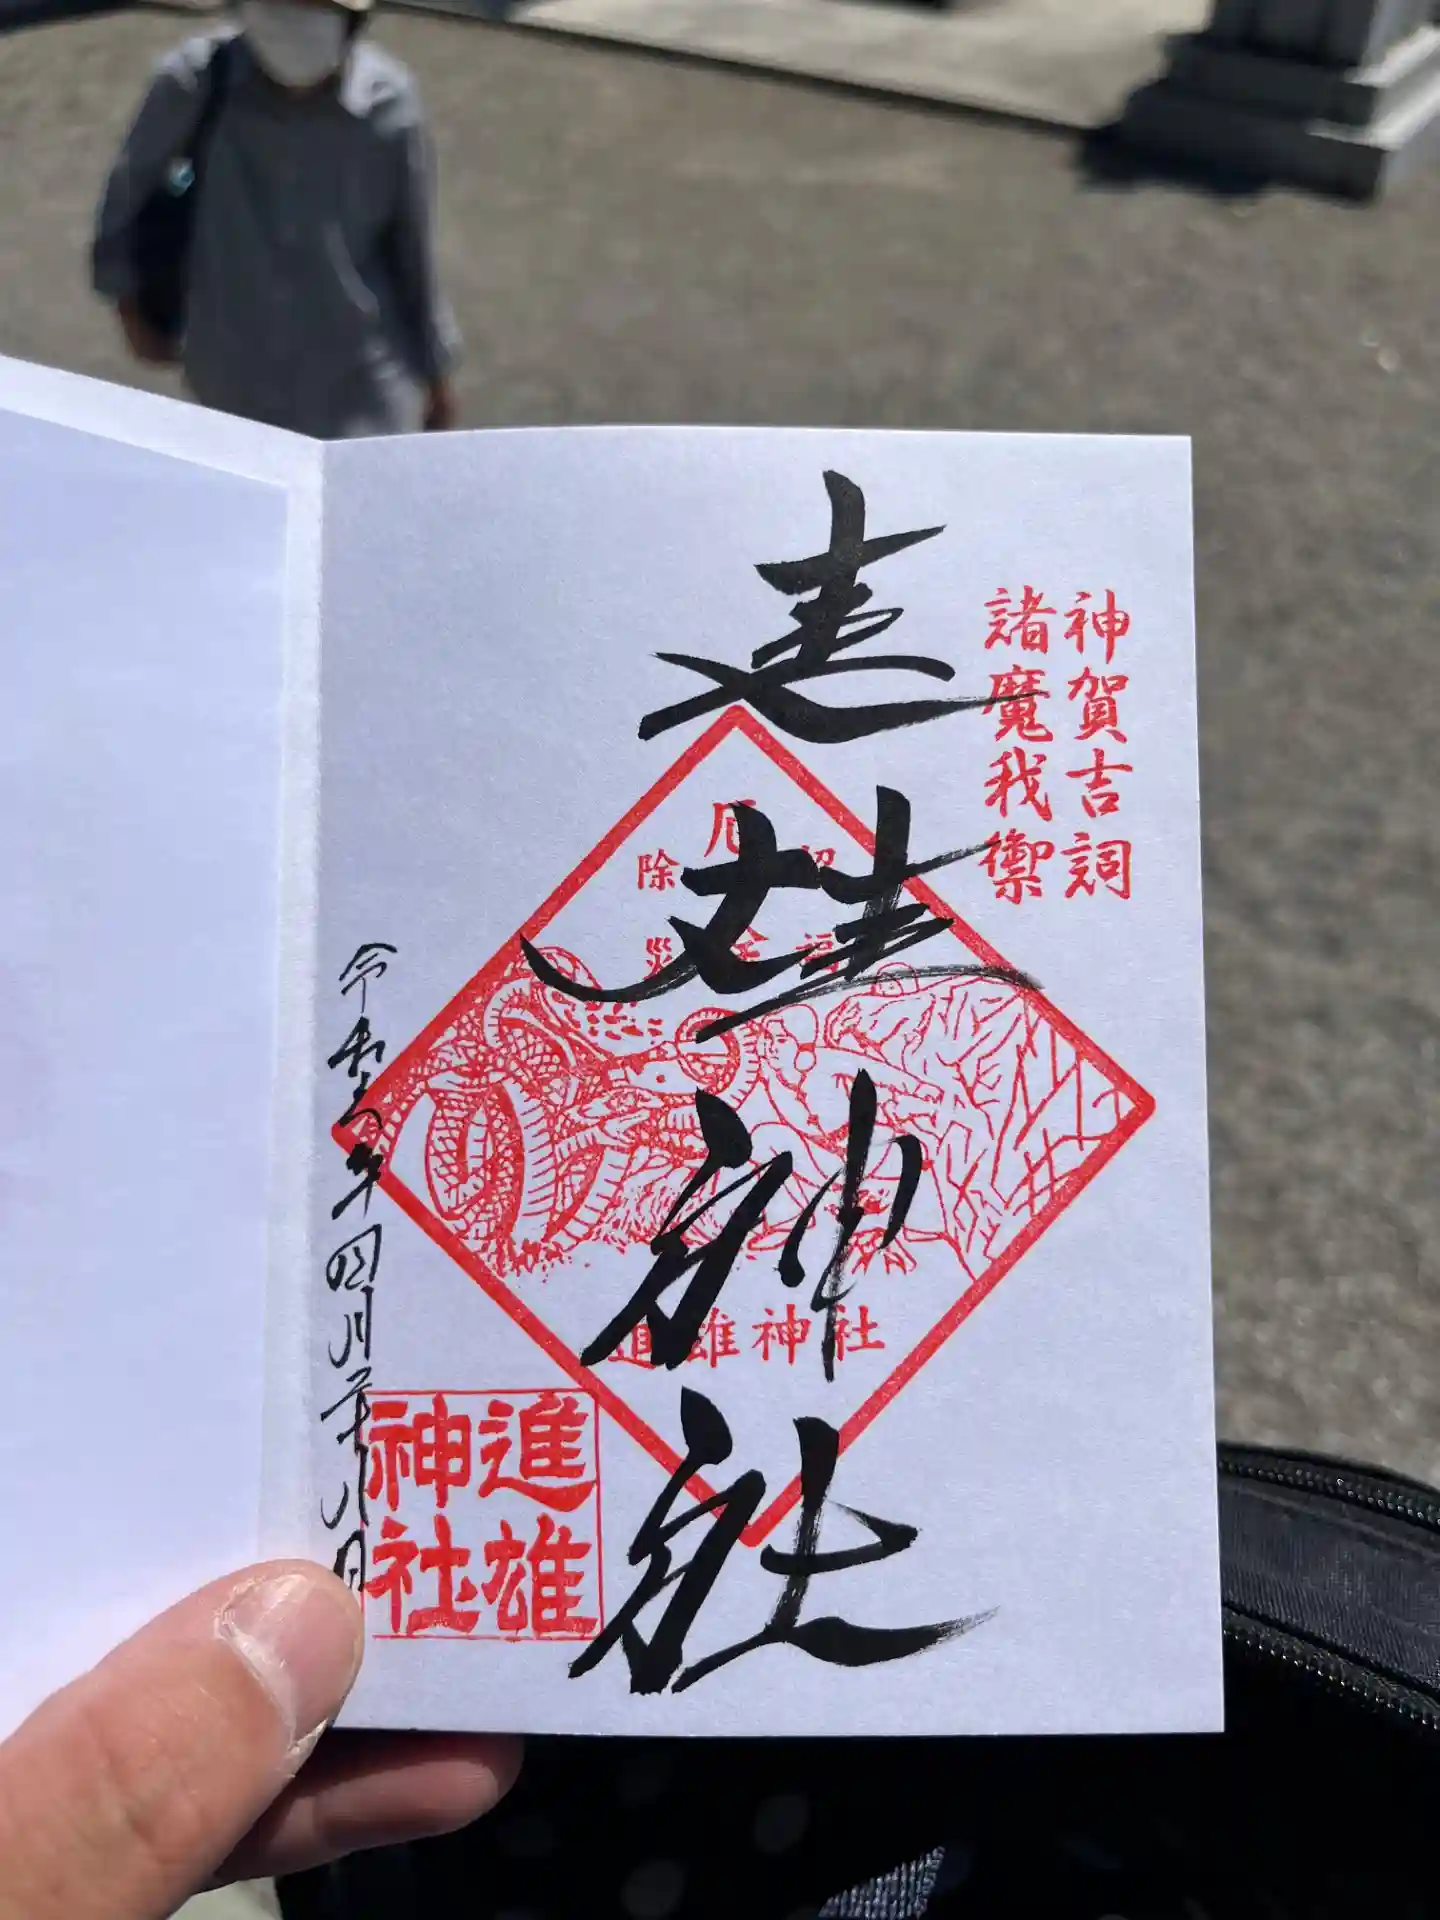 神賀吉詞
諸魔我禦
進雄神社
厄
除
招
災
来
福
進雄神社
進雄
神社
令和六年四月二十八日